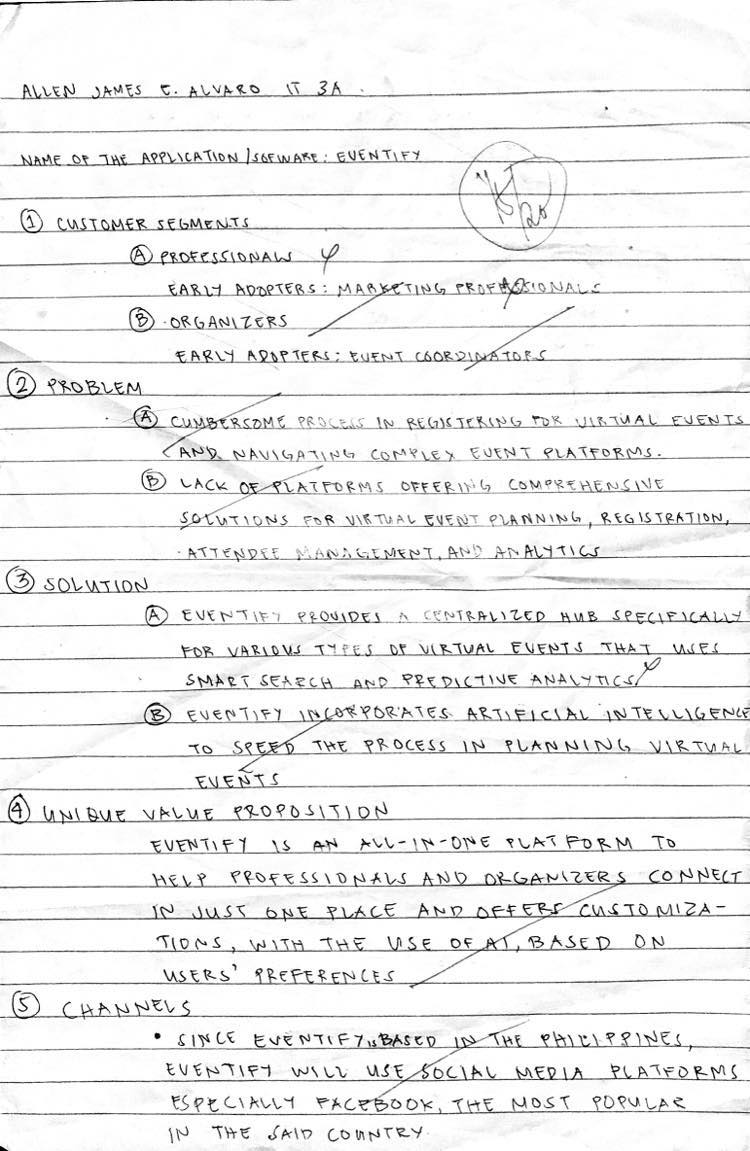 ALLEN JAMES E. ALVARO IT 3A
NAME OF THE APPLICATION/SOFWARE: EVENTIFY
① CUSTOMER SEGMENTS
Ⓐ PROFESSIONALS
EARLY ADOPTERS: MARKETING PROFESSIONALS
Ⓑ ORGANIZERS
EARLY ADOPTERS: EVENT COORDINATORS
② PROBLEM
Ⓐ CUMBERSOME PROCESS IN REGISTERING FOR VIRTUAL EVENTS
AND NAVIGATING COMPLEX EVENT PLATFORMS.
Ⓑ LACK OF PLATFORMS OFFERING COMPREHENSIVE
SOLUTIONS FOR VIRTUAL EVENT PLANNING, REGISTRATION,
ATTENDEE MANAGEMENT, AND ANALYTICS
③ SOLUTION
Ⓐ EVENTIFY PROVIDES A CENTRALIZED HUB SPECIFICALLY
FOR VARIOUS TYPES OF VIRTUAL EVENTS THAT USES
SMART SEARCH AND PREDICTIVE ANALYTICS
Ⓑ EVENTIFY INCORPORATES ARTIFICIAL INTELLIGENCE
TO SPEED THE PROCESS IN PLANNING VIRTUAL
EVENTS
④ UNIQUE VALUE PROPOSITION
EVENTIFY IS AN ALL-IN-ONE PLATFORM TO
HELP PROFESSIONALS AND ORGANIZERS CONNECT
IN JUST ONE PLACE AND OFFERS CUSTOMIZA-
TIONS, WITH THE USE OF AI, BASED ON
USERS' PREFERENCES
⑤ CHANNELS
• SINCE EVENTIFY IS BASED IN THE PHILIPPINES,
EVENTIFY WILL USE SOCIAL MEDIA PLATFORMS
ESPECIALLY FACEBOOK, THE MOST POPULAR
IN THE SAID COUNTRY.